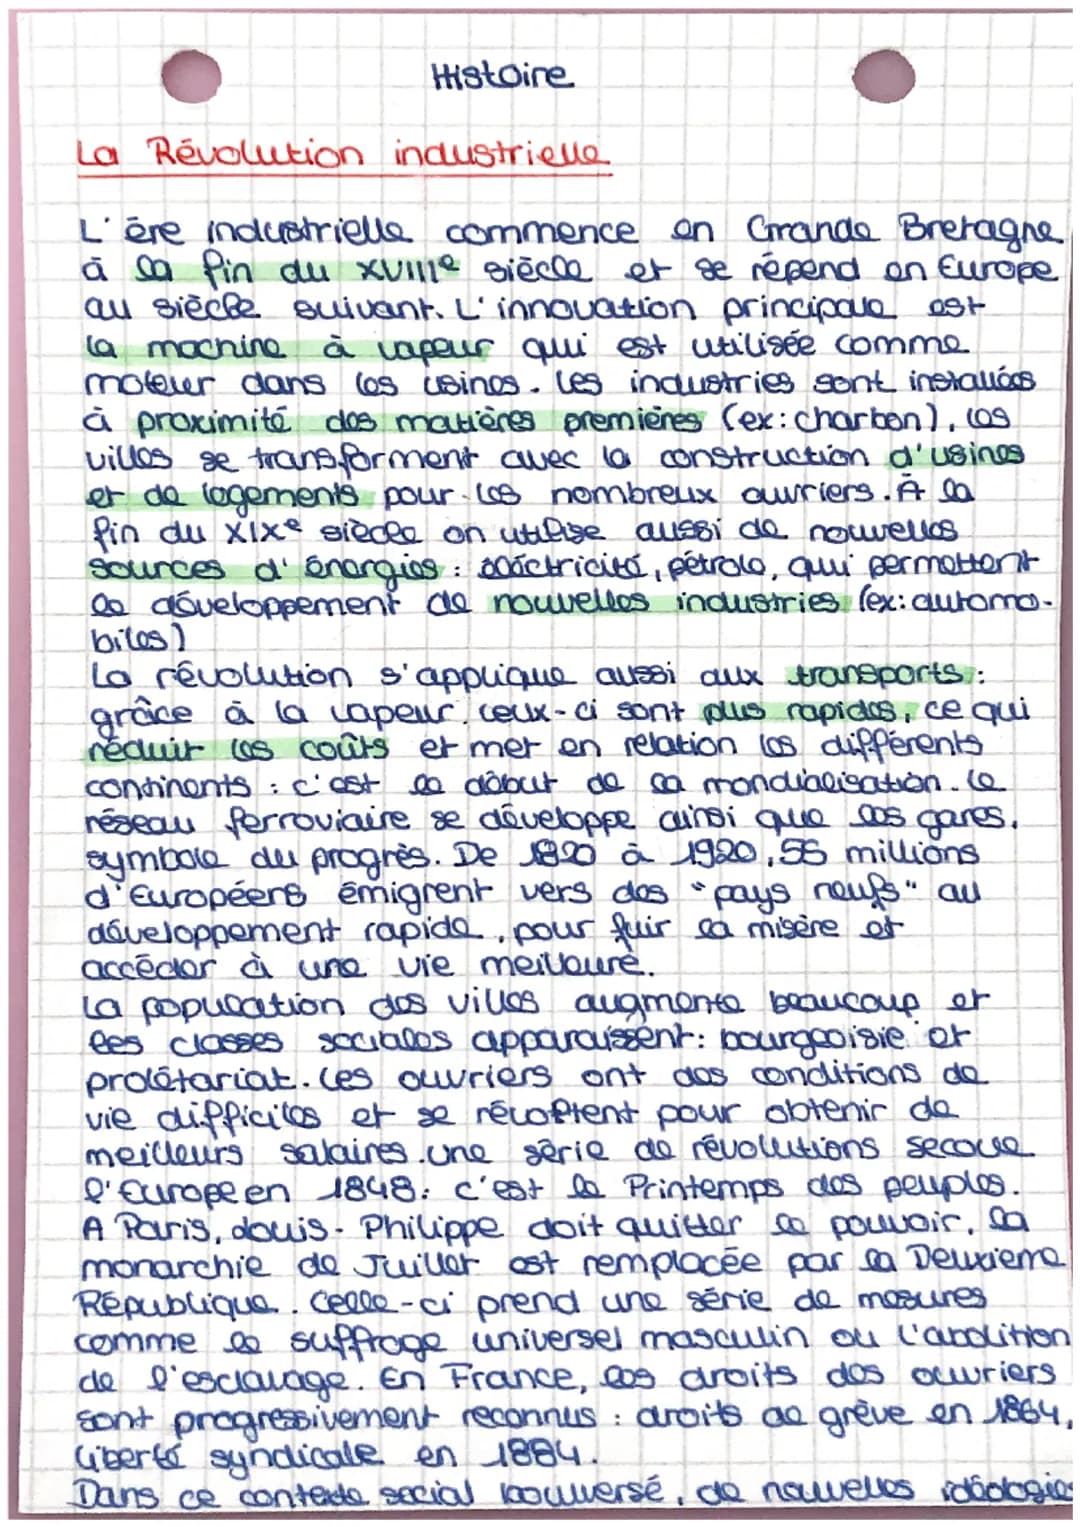 Histoire
La Révolution industrielle
L'ère industrielle commence en Grande Bretagne
à la fin du XVIIIe siècle et se répend en Europe
au siècle suivant. L'innovation principale est
la machine à vapeur qui est utilisée comme
moteur dans les usines. Les industries sont installées
à proximité des matières premières (ex: charbon), les
villes se transforment avec la construction d'usines
et de logements pour les nombreux ouvriers. À la
fin du XIXe siècle on utilise aussi de nouvelles
sources d'énergies : éléctricité, pétrole, qui permettent
le développement de nouvelles industries (ex: automo-
biles)
La révolution s'applique aussi aux transports :
grâce à la vapeur ceux-ci sont plus rapides, ce qui
réduit les coûts et met en relation les différents
continents : c'est le début de la mondialisation. Le
réseau ferroviaire se développe ainsi que les gares,
symbole du progrès. De 1820 à 1920, 55 millions
d'Européens émigrent vers des "pays neufs" au
développement rapide, pour fuir la misère et
accéder à une vie meilleure.
La population des villes augmente beaucoup et
les classes sociales apparaissent : bourgeoisie et
prolétariat. Les ouvriers ont des conditions de
vie difficiles et se révoltent pour obtenir de
meilleurs salaires. une série de révolutions secoue
l'Europe en 1848 : c'est le Printemps des peuples.
A Paris, Louis-Philippe doit quitter le pouvoir, la
monarchie de Juillet est remplacée par la Deuxieme
République. Celle-ci prend une série de mesures
comme le suffrage universel masculin ou l'abolition
de l'esclavage. En France, les droits des ouvriers
sont progressivement reconnus : droits de grève en 1864,
liberté syndicale en 1884.
Dans ce contexte social bouleversé, de nouvelles idéologies